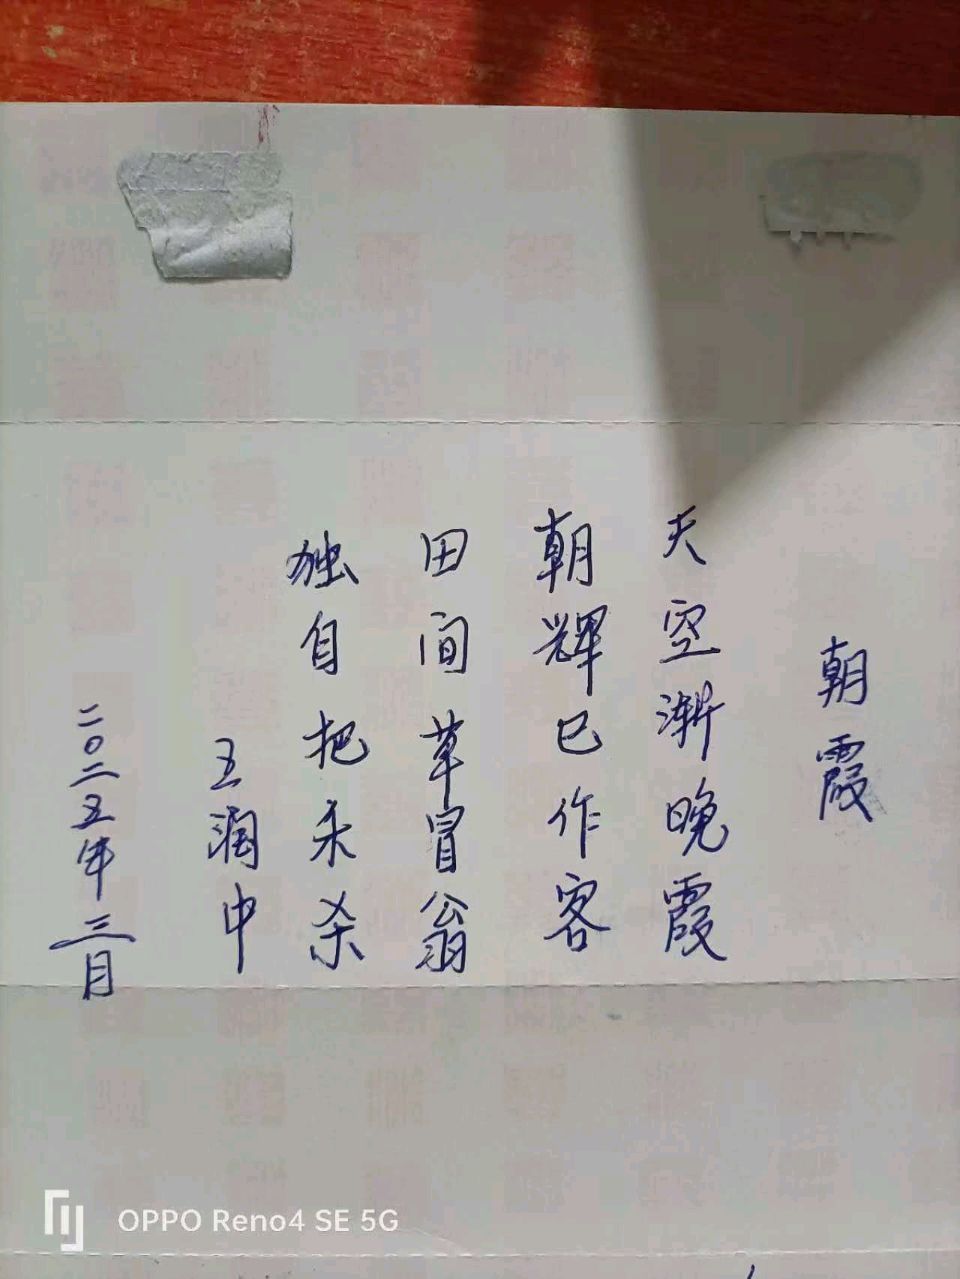 朝霞
天空渐晚霞
朝辉已作客
田间草冒翁
独自把禾杀
王润中
二〇二五年三月
OPPO Reno4 SE 5G